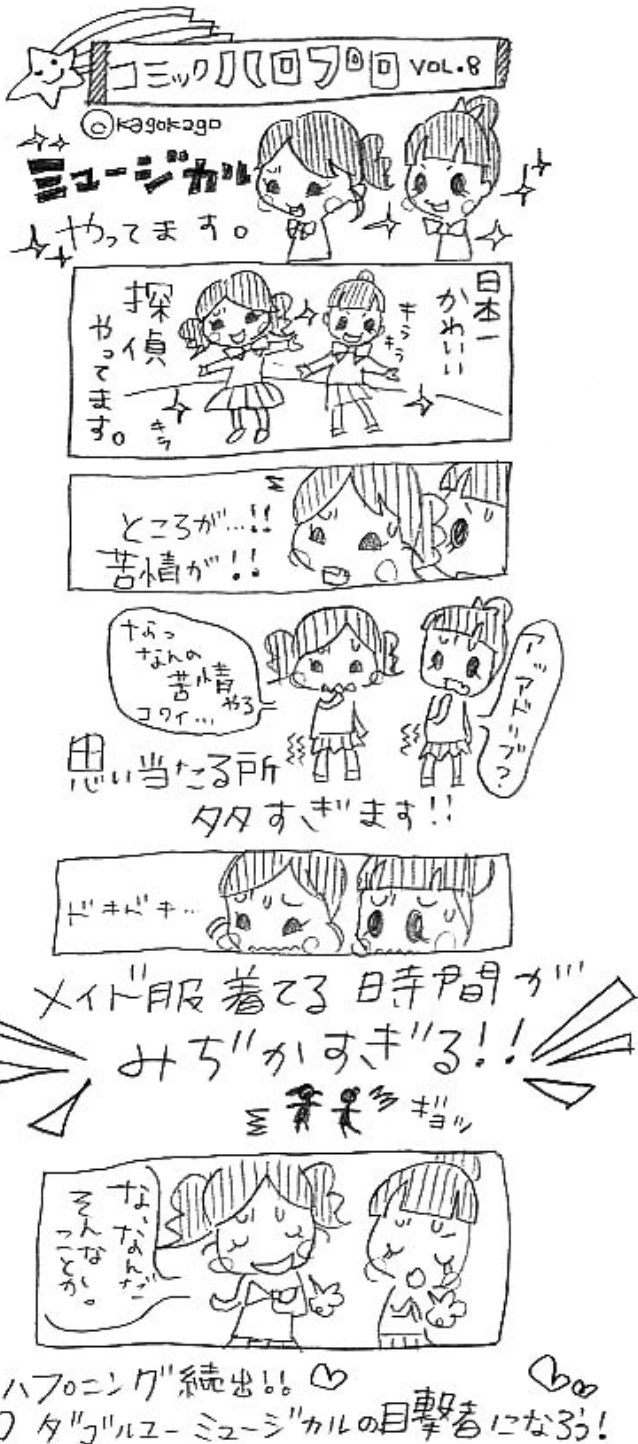 コミックハロプロ VOL.8
©kagokago
ミュージカル
やってます。
日本一
かわいい
きらきら
探偵
やってます。
きら
ところが…!!
苦情が!!
なっ
なんの
苦情やろ
コワイ…
アッアドリブ?
思い当たる所
タタすぎます!!
ドキドキ…
メイド服着てる時間が
みぢかすぎる!!
ギョッ
な、なんだ
そんな
ことか。
ハプニング続出!!
ダブルユーミュージカルの目撃者になろう!